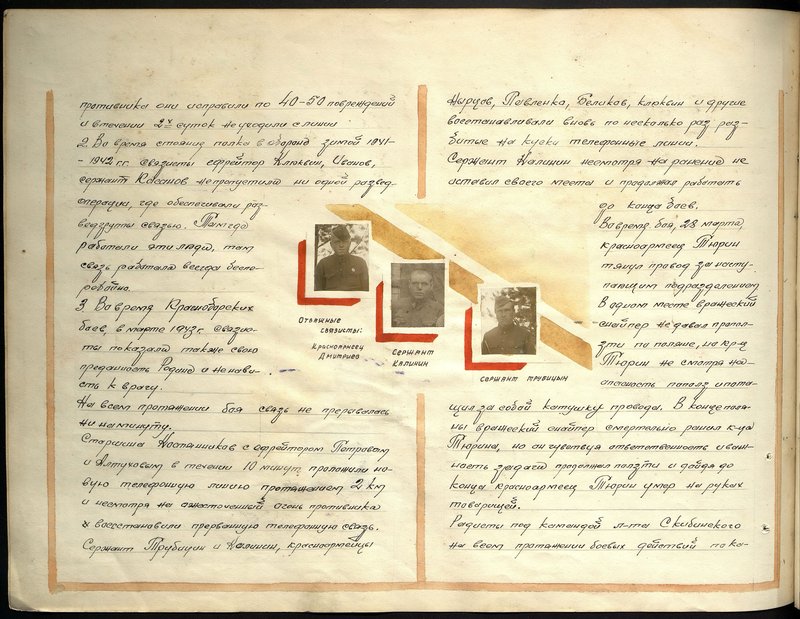 противника они исправили по 40-50 повреждений
и в течении 2х суток не уходили с линии.
2. Во время стояния полка в обороне зимой 1941-
-1942 гг. связисты ефрейтор Клюквин, Иванов,
сержант Касанов не пропустили ни одной развед-
операции, где обеспечивали раз-
ведгруппы связью. Там где
работали эти люди, там
связь работала всегда беспе-
ребойно.
3. Во время Красноборских
боев, в марте 1943 г. связис-
ты показали также свою
преданность Родине и ненави-
сть к врагу.
На всем протяжении боя связь не прерывалась
ни на минуту.
Старшина Постянников с ефрейтором Петровом
и Алтуховым в течении 10 минут проложили но-
вую телефонную линию протяжением 2 км
и несмотря на ожесточенный огонь противника
восстановили прерванную телефонную связь.
Сержант Трубицин и Калинин, красноармейцы
Отважные
связисты:
Красноармеец
Дмитриев
Сержант
Калинин
сержант Трубицын
Нырцов, Павленко, Беликов, Клюквин и другие
восстанавливали вновь по несколько раз раз-
битые на куски телефонные линии.
Сержант Калинин несмотря на ранение не
оставил своего места и продолжал работать
до конца боев.
Во время боя, 28 марта
красноармеец Тюрин
тянул провод за насту-
пающим подразделением
В одном месте вражеский
снайпер не давал пропол-
зти по поляне, но кр-ц
Тюрин не смотря на
опасность пополз и пота-
щил за собой катушку провода. В конце поля-
ны вражеский снайпер смертельно ранил к-ца
Тюрина, но он чувствуя ответственность и важ-
ность задачи продолжал ползти и дойдя до
конца красноармеец Тюрин умер на руках
товарищей.
Радисты под командой л-та Скибинского
на всем протяжении боевых действий пока-